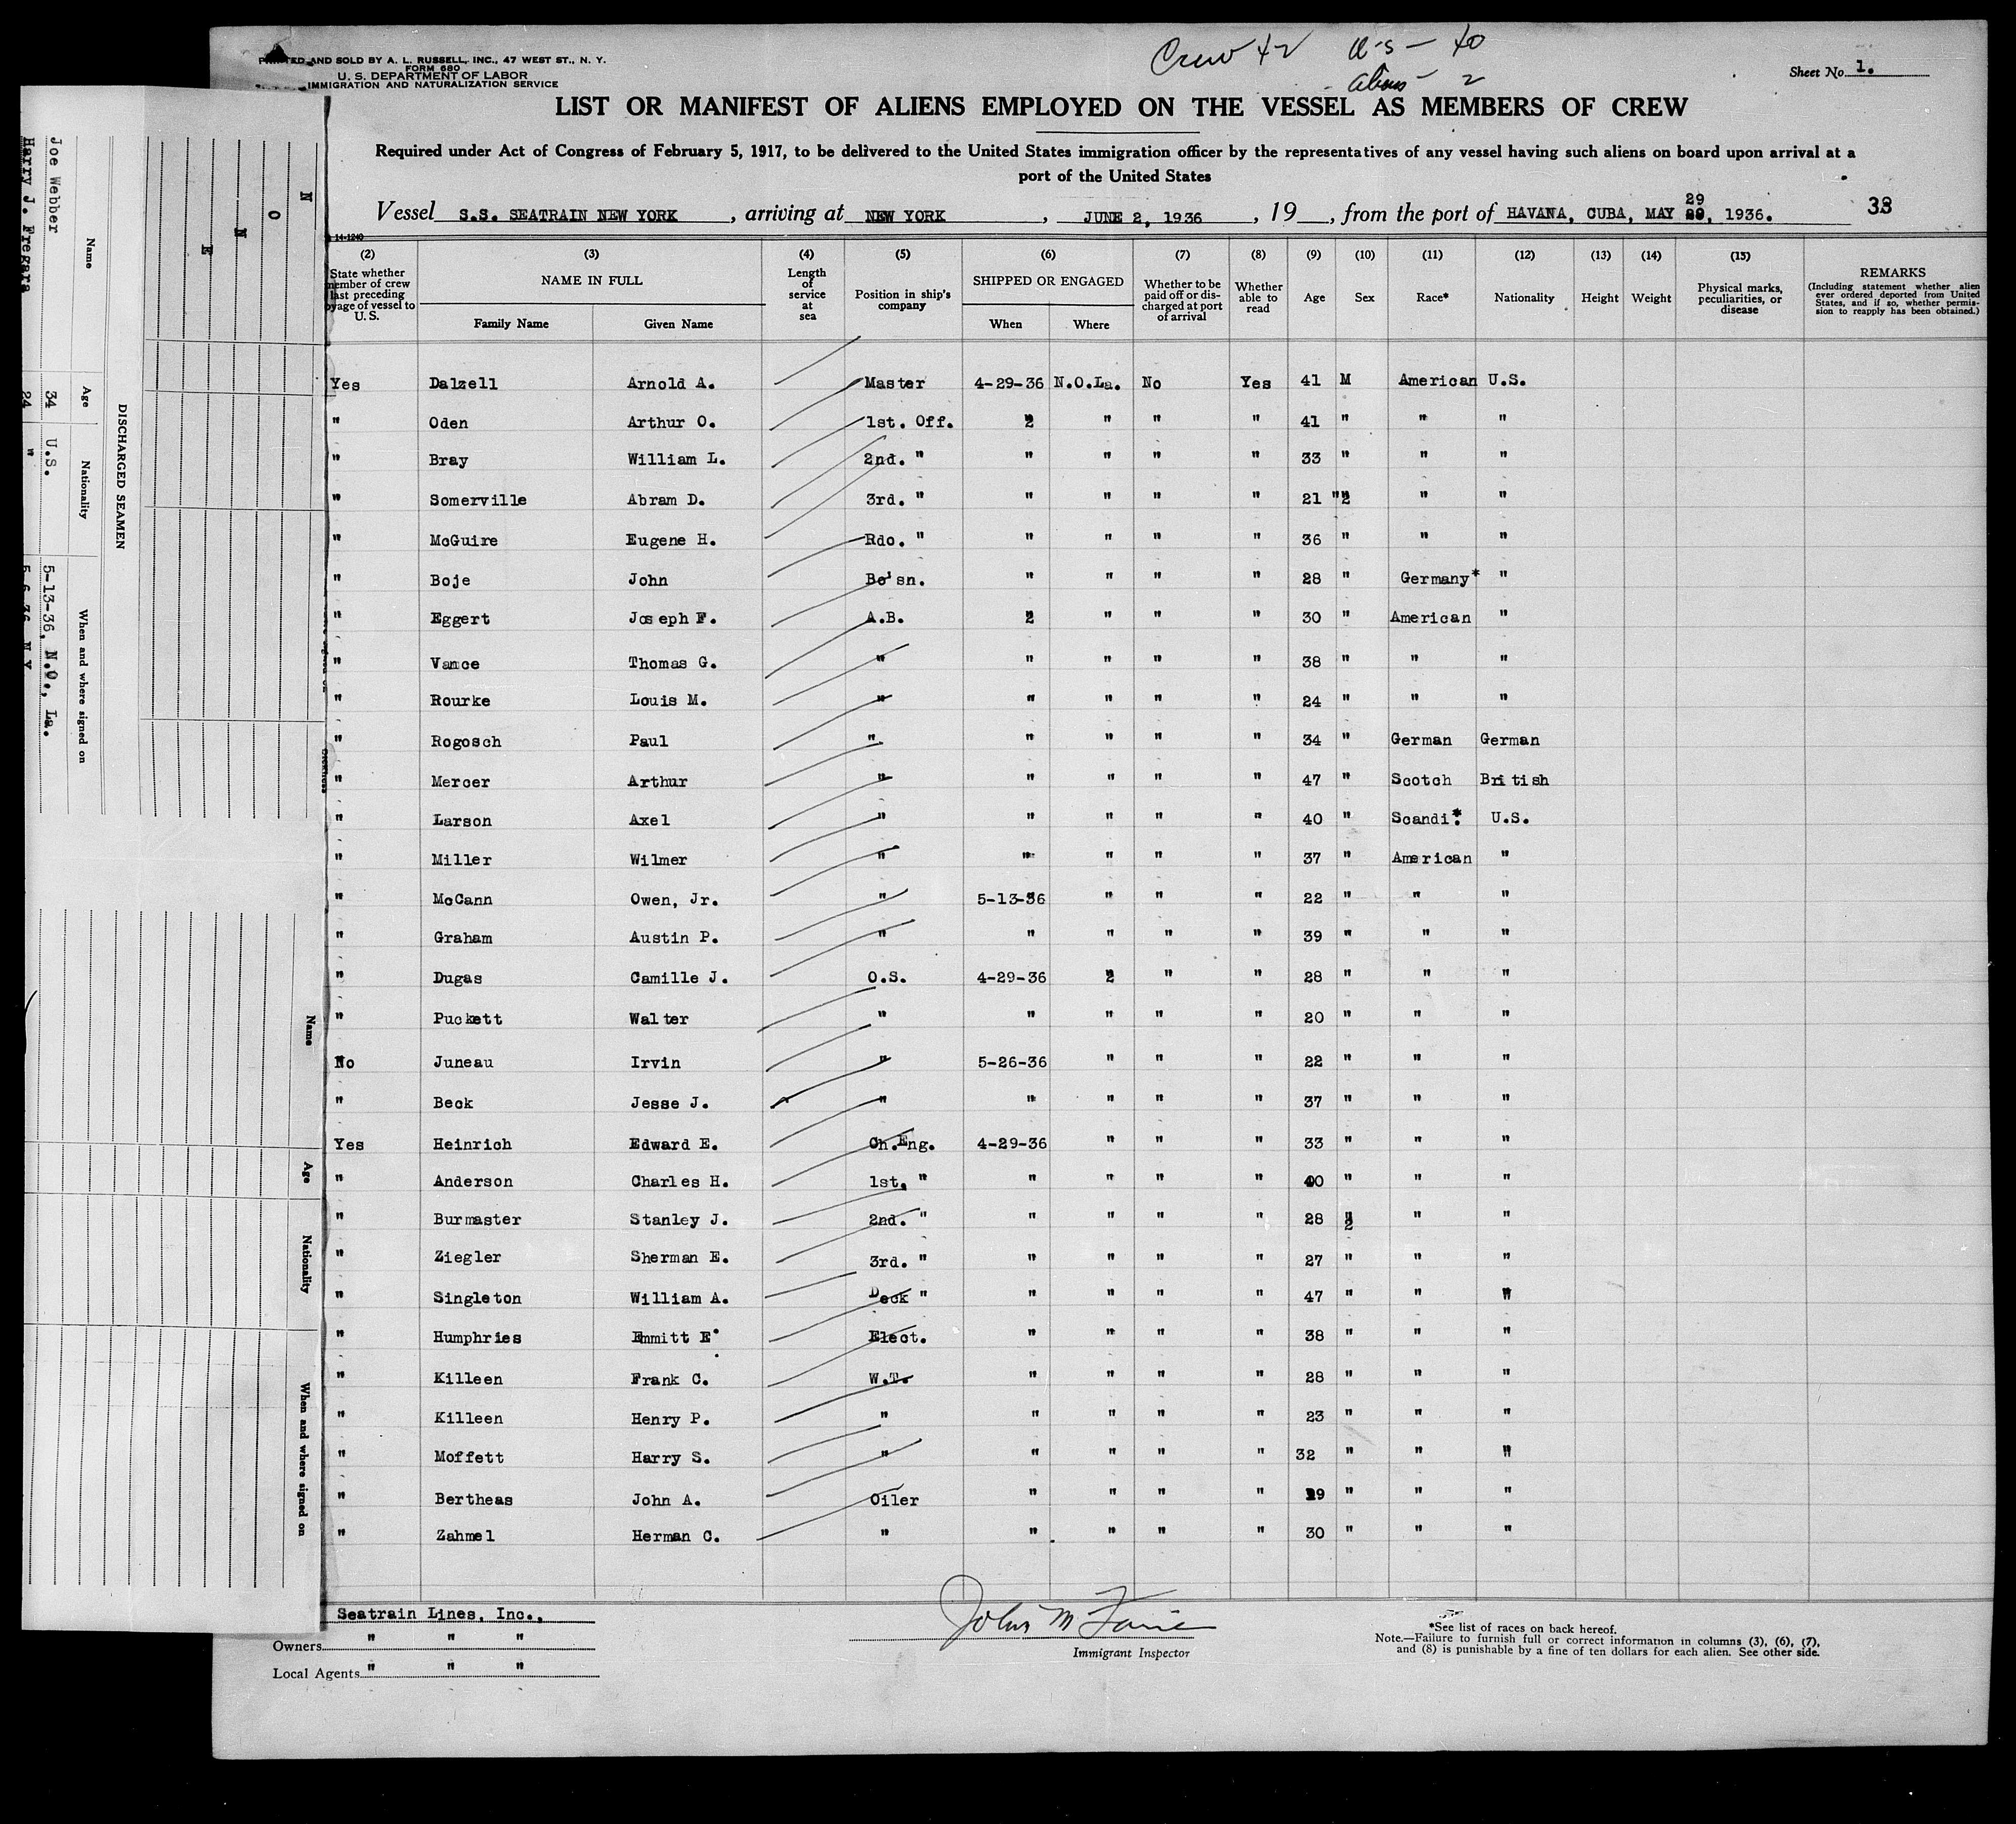 Crew 42 U-S - 40
Aliens - 2
PRINTED AND SOLD BY A. L. RUSSELL, INC., 47 WEST ST., N. Y.
FORM 680
U. S. DEPARTMENT OF LABOR
IMMIGRATION AND NATURALIZATION SERVICE
Sheet No. 1.
LIST OR MANIFEST OF ALIENS EMPLOYED ON THE VESSEL AS MEMBERS OF CREW
Required under Act of Congress of February 5, 1917, to be delivered to the United States immigration officer by the representatives of any vessel having such aliens on board upon arrival at a
port of the United States
29
Vessel S.S. SEATRAIN NEW YORK, arriving at NEW YORK, JUNE 2, 1936, 19__, from the port of HAVANA, CUBA, MAY 1936. 33
14-1240
(2) (3) (4) (5) (6) (7) (8) (9) (10) (11) (12) (13) (14) (15)
State whether member of crew last preceding voyage of vessel to U. S.
NAME IN FULL
Family Name Given Name
Length of service at sea
Position in ship's company
SHIPPED OR ENGAGED
When Where
Whether to be paid off or discharged at port of arrival
Whether able to read
Age Sex Race* Nationality Height Weight
Physical marks, peculiarities, or disease
REMARKS
(Including statement whether alien ever ordered deported from United States, and if so, whether permission to reapply has been obtained.)
Yes Dalzell Arnold A. Master 4-29-36 N.O.La. No Yes 41 M American U.S.
" Oden Arthur O. 1st. Off. " " " " 41 " " "
" Bray William L. 2nd. " " " " " 33 " " "
" Somerville Abram D. 3rd. " " " " " 21 " " "
" McGuire Eugene H. Rdo. " " " " " 36 " " "
" Boje John Bo'sn. " " " " 28 " Germany* "
" Eggert Joseph F. A.B. " " " " 30 " American "
" Vance Thomas G. " " " " " 38 " " "
" Rourke Louis M. " " " " " 24 " " "
" Rogosch Paul " " " " " 34 " German German
" Mercer Arthur " " " " " 47 " Scotch British
" Larson Axel " " " " " 40 " Scandi.* U.S.
" Miller Wilmer " " " " " 37 " American "
" McCann Owen, Jr. " 5-13-36 " " " 22 " " "
" Graham Austin P. " " " " " 39 " " "
" Dugas Camille J. O.S. 4-29-36 " " " 28 " " "
" Puckett Walter " " " " " 20 " " "
No Juneau Irvin " 5-26-36 " " " 22 " " "
" Beck Jesse J. " " " " " 37 " " "
Yes Heinrich Edward E. Ch.Eng. 4-29-36 " " " 33 " " "
" Anderson Charles H. 1st. " " " " " 40 " " "
" Burmaster Stanley J. 2nd. " " " " " 28 " " "
" Ziegler Sherman E. 3rd. " " " " " 27 " " "
" Singleton William A. Deck " " " " " 47 " " "
" Humphries Emmitt E. Elect. " " " " 38 " " "
" Killeen Frank C. W.T. " " " " 28 " " "
" Killeen Henry P. " " " " " 23 " " "
" Moffett Harry S. " " " " " 32 " " "
" Bertheas John A. Oiler " " " " 29 " " "
" Zahmel Herman C. " " " " " 30 " " "
Seatrain Lines, Inc.,
Owners " " "
Local Agents " " "
John M
Immigrant Inspector
*See list of races on back hereof.
Note.—Failure to furnish full or correct information in columns (3), (6), (7),
and (8) is punishable by a fine of ten dollars for each alien. See other side.
N
O
N
E
DISCHARGED SEAMEN
Name Age Nationality When and where signed on
Joe Webber 34 U.S. 5-13-36, N.O., La.
Harry J. Fregara 24 " 5-6-36 N.Y.
Name Age Nationality When and where signed on